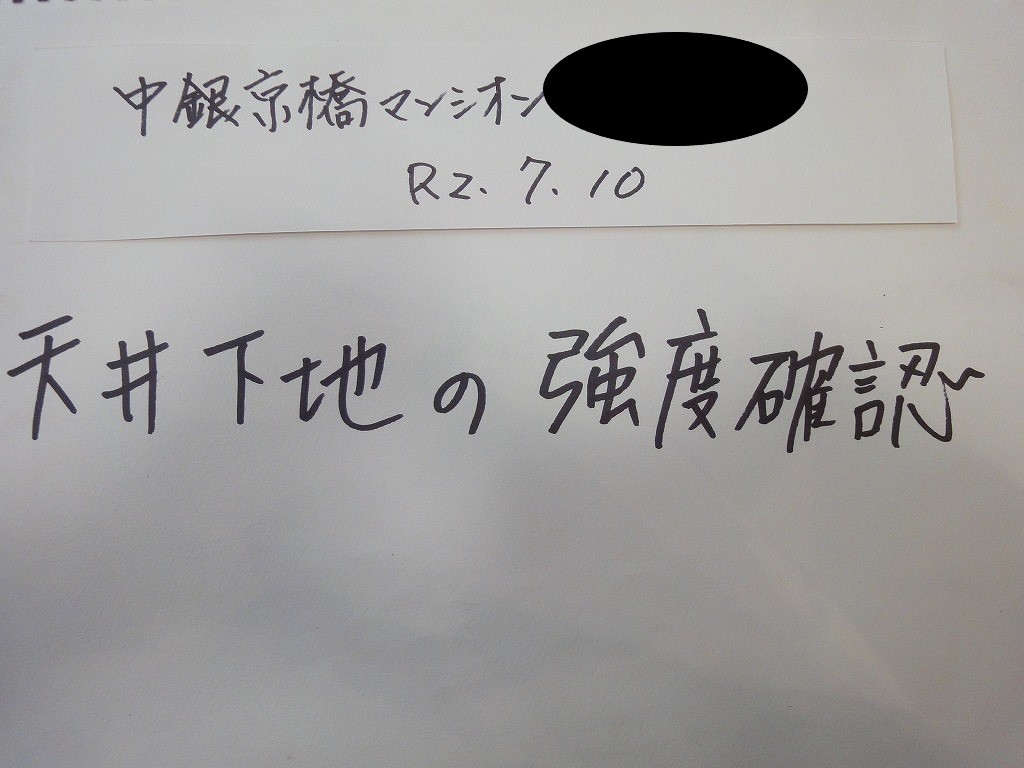 中銀京橋マンシオン
R2.7.10
天井下地の強度確認